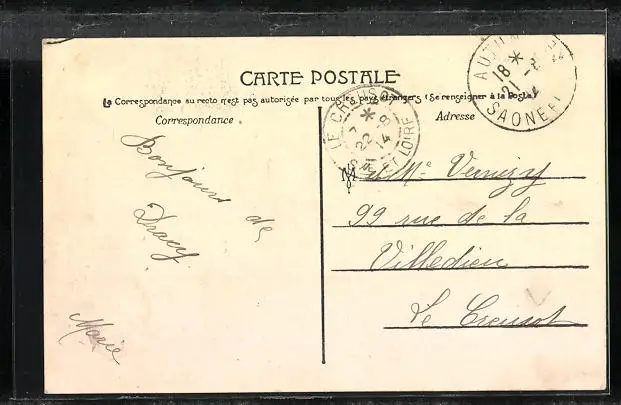 CARTE POSTALE
La Correspondance au recto n'est pas autorisée par tous les pays étrangers (Se renseigner à la Poste)
Correspondance
Bonjour de
Dracy
Marie
Adresse
M et Mme
99 rue de la
Villedieu
Le Creusot
LE CREUSOT
7 *
22 - 8
14
ET LOIRE
AUTUN
18 *
21 - 8
SAONE ET